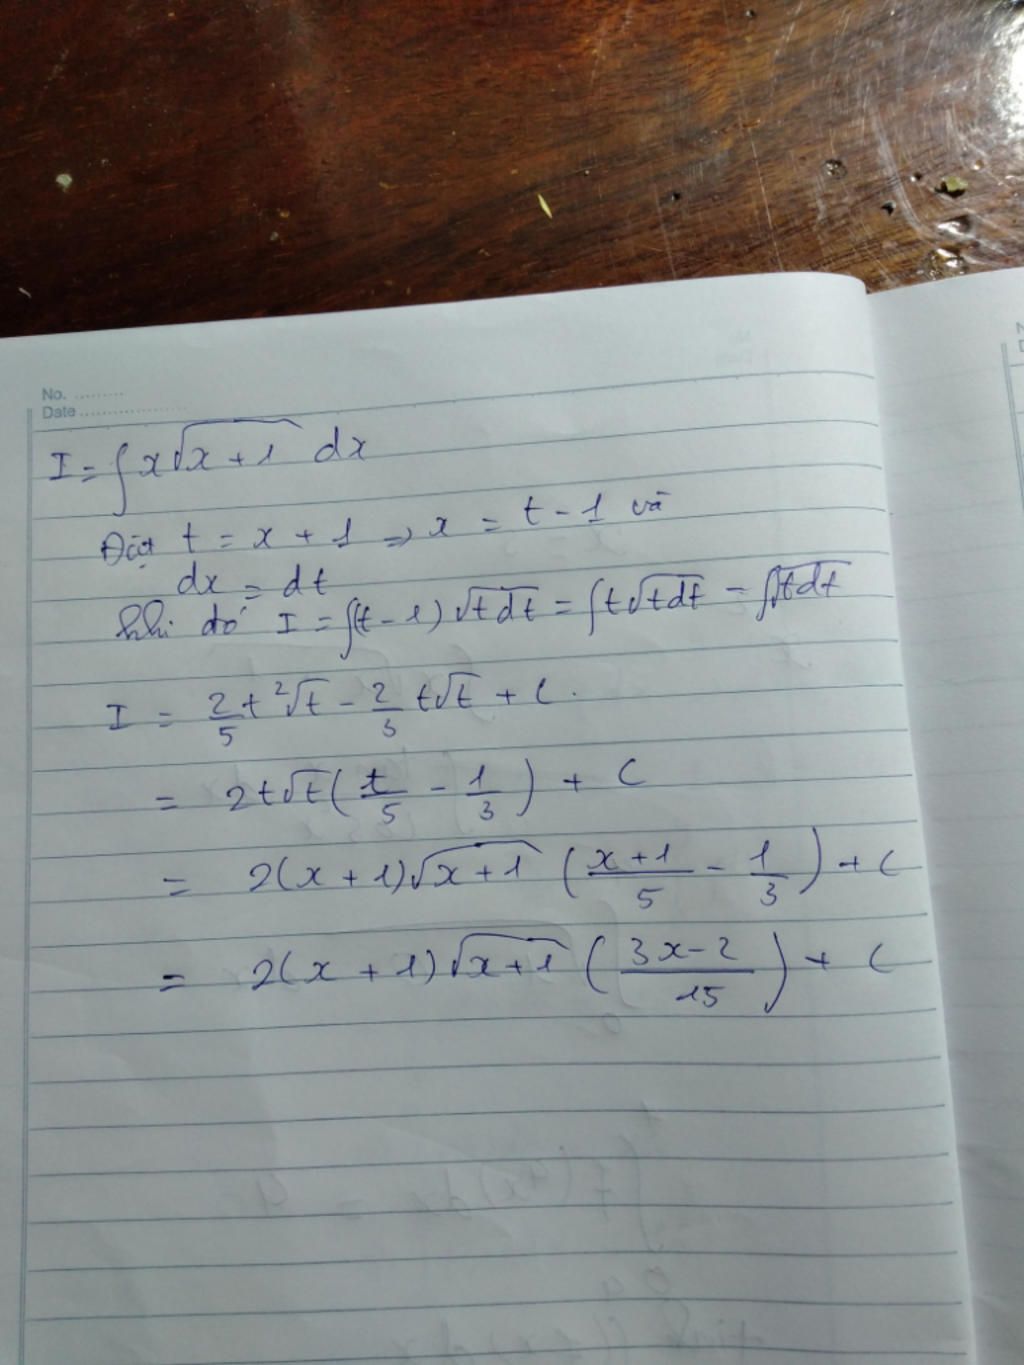 No. .........
Date ...................
I = ∫ x√(x + 1) dx
Đặt t = x + 1 => x = t - 1 và
dx = dt
Khi đó I = ∫(t - 1) √(tdt) = ∫ t√(tdt) - ∫√(tdt)
I = 2/5 t²√t - 2/3 t√t + C.
= 2t√t (t/5 - 1/3) + C
= 2(x + 1)√(x + 1) ((x + 1)/5 - 1/3) + C
= 2(x + 1)√(x + 1) ((3x - 2)/15) + C